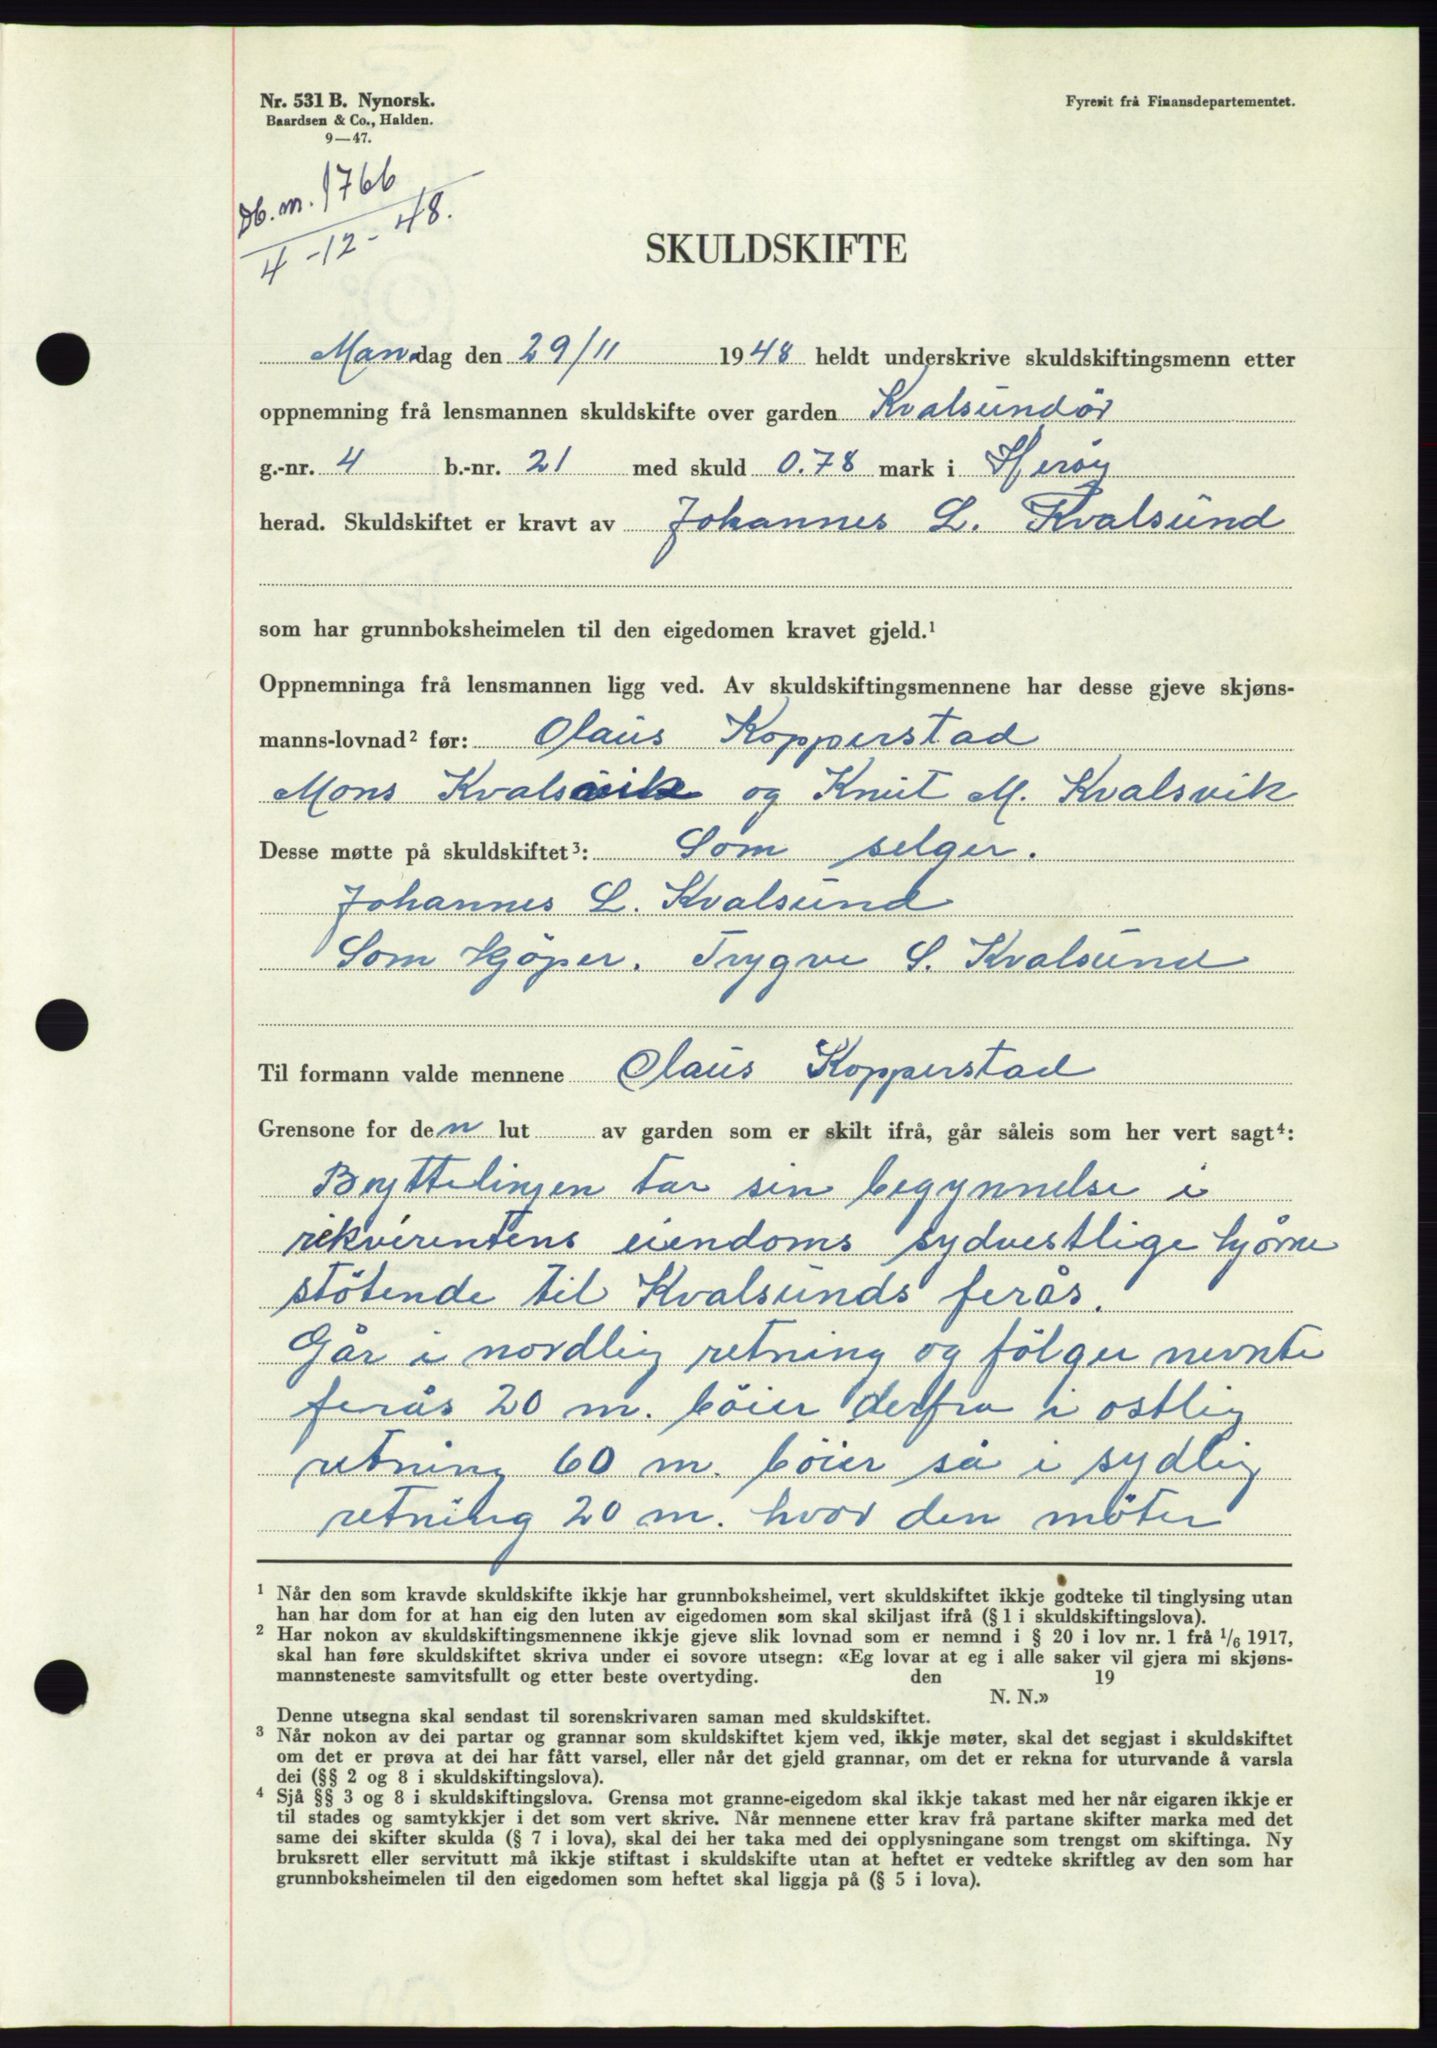 Nr. 531 B. Nynorsk.
Baardsen & Co., Halden.
9—47.
Fyresit frå Finansdepartementet.
Db. m. 1766
4-12-48.
SKULDSKIFTE
Mandag den 29/11 1948 heldt underskrive skuldskiftingsmenn etter
oppnemning frå lensmannen skuldskifte over garden Kvalsundör
g.-nr. 4 b.-nr. 21 med skuld 0.78 mark i Heröy
herad. Skuldskiftet er kravt av Johannes L. Kvalsund
som har grunnboksheimelen til den eigedomen kravet gjeld.¹
Oppnemninga frå lensmannen ligg ved. Av skuldskiftingsmennene har desse gjeve skjøns-
manns-lovnad² før: Olaus Kopperstad
Mons Kvalsvik og Knut M. Kvalsvik
Desse møtte på skuldskiftet³: Som selger.
Johannes L. Kvalsund
Som kjöper. Trygve S. Kvalsund
Til formann valde mennene Olaus Kopperstad
Grensone for den lut av garden som er skilt ifrå, går såleis som her vert sagt⁴:
Byttelinjen tar sin begynnelse i
rekvirentens eiendoms sydvestlige hjörne
stötende til Kvalsunds ferås.
Går i nordlig retning og fölger nevnte
ferås 20 m. böier derfra i ostlig
retning 60 m. böier så i sydlig
retning 20 m. hvor den möter
¹ Når den som kravde skuldskifte ikkje har grunnboksheimel, vert skuldskiftet ikkje godteke til tinglysing utan
han har dom for at han eig den luten av eigedomen som skal skiljast ifrå (§ 1 i skuldskiftingslova).
² Har nokon av skuldskiftingsmennene ikkje gjeve slik lovnad som er nemnd i § 20 i lov nr. 1 frå 1/6 1917,
skal han føre skuldskiftet skriva under ei sovore utsegn: «Eg lovar at eg i alle saker vil gjera mi skjøns-
mannsteneste samvitsfullt og etter beste overtyding. den 19
N. N.»
Denne utsegna skal sendast til sorenskrivaren saman med skuldskiftet.
³ Når nokon av dei partar og grannar som skuldskiftet kjem ved, ikkje møter, skal det segjast i skuldskiftet
om det er prøva at dei har fått varsel, eller når det gjeld grannar, om det er rekna for uturvande å varsla
dei (§§ 2 og 8 i skuldskiftingslova).
⁴ Sjå §§ 3 og 8 i skuldskiftingslova. Grensa mot granne-eigedom skal ikkje takast med her når eigaren ikkje er
til stades og samtykkjer i det som vert skrive. Når mennene etter krav frå partane skifter marka med det
same dei skifter skulda (§ 7 i lova), skal dei her taka med dei opplysningane som trengst om skiftinga. Ny
bruksrett eller servitutt må ikkje stiftast i skuldskifte utan at heftet er vedteke skriftleg av den som har
grunnboksheimelen til den eigedomen som heftet skal liggja på (§ 5 i lova).